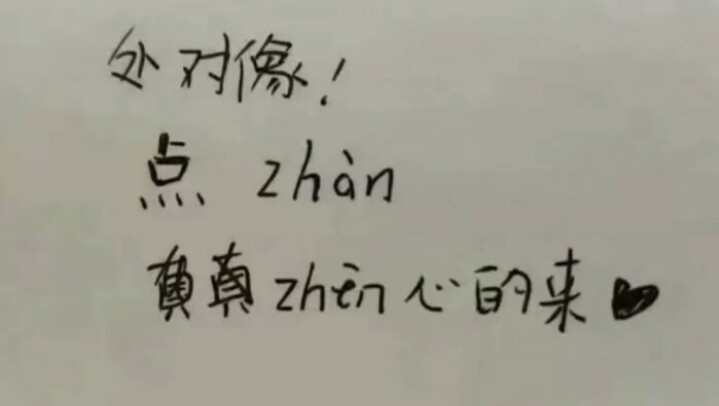 处对像！
点 zhàn
真 zhēn 心的来